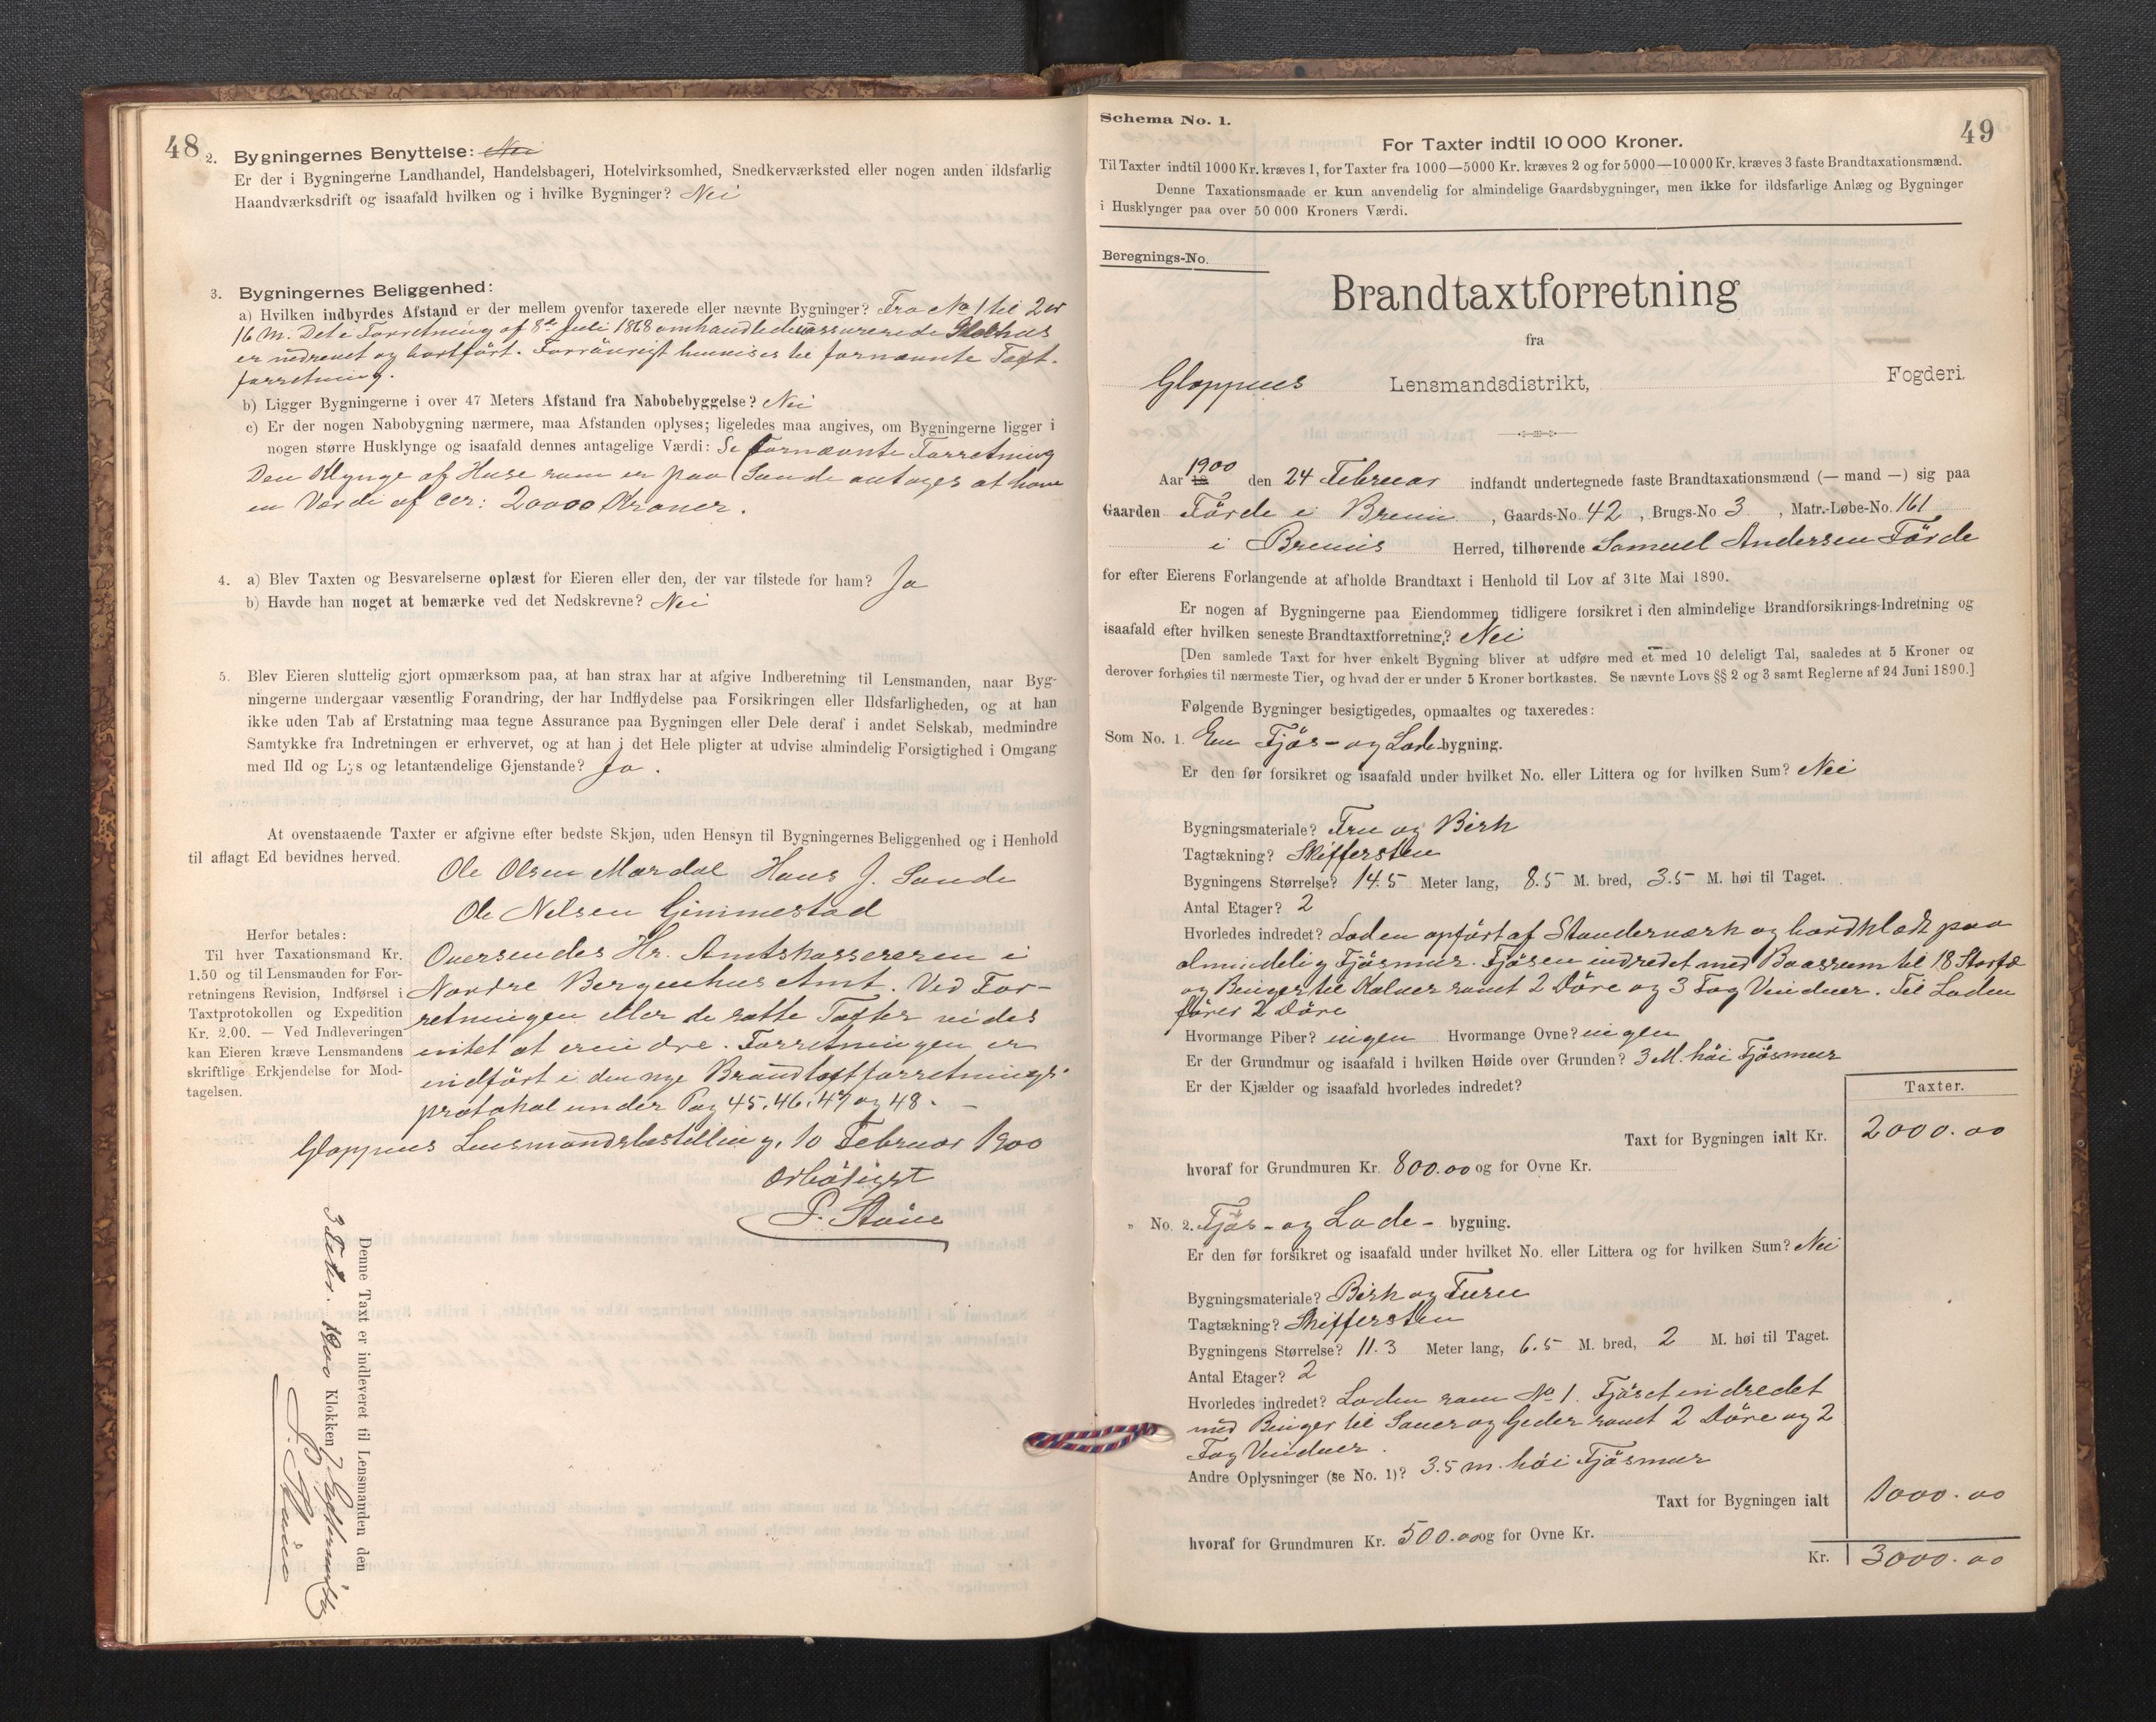 48
2. Bygningernes Benyttelse: Nei
Er der i Bygningerne Landhandel, Handelsbageri, Hotelvirksomhed, Snedkerværksted eller nogen anden ildsfarlig
Haandværksdrift og isaafald hvilken og i hvilke Bygninger? Nei
3. Bygningernes Beliggenhed:
a) Hvilken indbyrdes Afstand er der mellem ovenfor taxerede eller nævnte Bygninger? Fra No 1 til 2 er
16 M. Det i Forretning af 8de Juli 1868 omhandlede assurerede
er nedrevet og bortført. Forøvrigt henvises til fornævnte Taxt-
forretning.
b) Ligger Bygningerne i over 47 Meters Afstand fra Nabobebyggelse? Nei
c) Er der nogen Nabobygning nærmere, maa Afstanden oplyses; ligeledes maa angives, om Bygningerne ligger i
nogen større Husklynge og isaafald dennes antagelige Værdi: Se fornævnte Forretning
Den Klynge af Huse som er paa Sande antages at have
en Værdi af cir: 20000 Kroner.
4. a) Blev Taxten og Besvarelserne oplæst for Eieren eller den, der var tilstede for ham? Ja
b) Havde han noget at bemærke ved det Nedskrevne? Nei
5. Blev Eieren sluttelig gjort opmærksom paa, at han strax har at afgive Indberetning til Lensmanden, naar Byg-
ningerne undergaar væsentlig Forandring, der har Indflydelse paa Forsikringen eller Ildsfarligheden, og at han
ikke uden Tab af Erstatning maa tegne Assurance paa Bygningen eller Dele deraf i andet Selskab, medmindre
Samtykke fra Indretningen er erhvervet, og at han i det Hele pligter at udvise almindelig Forsigtighed i Omgang
med Ild og Lys og letantændelige Gjenstande? Ja.
At ovenstaaende Taxter er afgivne efter bedste Skjøn, uden Hensyn til Bygningernes Beliggenhed og i Henhold
til aflagt Ed bevidnes herved.
Ole Olsen Mardal Hans J. Sande
Ole Nelsen Gimmestad
Herfor betales:
Til hver Taxationsmand Kr.
1.50 og til Lensmanden for For-
retningens Revision, Indførsel i
Taxtprotokollen og Expedition
Kr. 2.00. — Ved Indleveringen
kan Eieren kræve Lensmandens
skriftlige Erkjendelse for Mod-
tagelsen.
Oversendes Hr. Amtskassereren i
Nordre Bergenhus Amt. Ved For-
retningen eller de satte Taxter vides
intet at erindre. Forretningen er
indført i den nye Brandtaxtforretnings-
protokol under Pag 45, 46, 47 og 48. —
Gloppens Lensmandsbestilling, 10 Februar 1900
Ærbødigst
Denne Taxt er indleveret til Lensmanden den
3 Febr. 1900 Klokken 7 Eftermiddag
49
Schema No. 1.
For Taxter indtil 10 000 Kroner.
Til Taxter indtil 1000 Kr. kræves 1, for Taxter fra 1000—5000 Kr. kræves 2 og for 5000—10 000 Kr. kræves 3 faste Brandtaxationsmænd.
Denne Taxationsmaade er kun anvendelig for almindelige Gaardsbygninger, men ikke for ildsfarlige Anlæg og Bygninger
i Husklynger paa over 50 000 Kroners Værdi.
Beregnings-No.
Brandtaxtforretning
fra
Gloppens Lensmandsdistrikt, Fogderi.
Aar 18 1900 den 24 Februar indfandt undertegnede faste Brandtaxationsmænd (— mand —) sig paa
Gaarden Förde i Breim, Gaards-No. 42, Brugs-No 3, Matr.-Løbe-No. 161
i Breims Herred, tilhørende Samuel Andersen Förde
for efter Eierens Forlangende at afholde Brandtaxt i Henhold til Lov af 31te Mai 1890.
Er nogen af Bygningerne paa Eiendommen tidligere forsikret i den almindelige Brandforsikrings-Indretning og
isaafald efter hvilken seneste Brandtaxtforretning? Nei
[Den samlede Taxt for hver enkelt Bygning bliver at udføre med et med 10 deleligt Tal, saaledes at 5 Kroner og
derover forhøies til nærmeste Tier, og hvad der er under 5 Kroner bortkastes. Se nævnte Lovs §§ 2 og 3 samt Reglerne af 24 Juni 1890.]
Følgende Bygninger besigtigedes, opmaaltes og taxeredes:
Som No. 1. En Fjös- og Lade-bygning.
Er den før forsikret og isaafald under hvilket No. eller Littera og for hvilken Sum? Nei
Bygningsmateriale? Fru og Birk
Tagtækning? Skiffersten
Bygningens Størrelse? 14.5 Meter lang, 8.5 M. bred, 3.5 M. høi til Taget.
Antal Etager? 2
Hvorledes indredet? Laden opført af Stenderværk og bordklædt paa
almindelig Fjösmur. Fjösen indredet med Baasrum til 18 Storfæ
og Binger til Kalver samt 2 Döre og 3 Fag Vinduer. Til Laden
förer 2 Döre
Hvormange Piber? ingen Hvormange Ovne? ingen
Er der Grundmur og isaafald i hvilken Høide over Grunden? 3 M. høi Fjösmur
Er der Kjælder og isaafald hvorledes indredet?
Taxter.
Taxt for Bygningen ialt Kr. 2000.00
hvoraf for Grundmuren Kr. 800.00 og for Ovne Kr.
" No. 2. Fjös- og Lade- bygning.
Er den før forsikret og isaafald under hvilket No. eller Littera og for hvilken Sum? Nei
Bygningsmateriale? Birk og Furu
Tagtækning? Skiffersten
Bygningens Størrelse? 11.3 Meter lang, 6.5 M. bred, 2 M. høi til Taget.
Antal Etager? 2
Hvorledes indredet? Laden som No 1. Fjöset indredet
med Binger til Sauer og Geder samt 2 Döre og 2
Fag Vinduer.
Andre Oplysninger (se No. 1)? 3.5 m. høi Fjösmur
Taxt for Bygningen ialt 1000.00
hvoraf for Grundmuren Kr. 500.00 og for Ovne Kr.
Kr. 3000.00